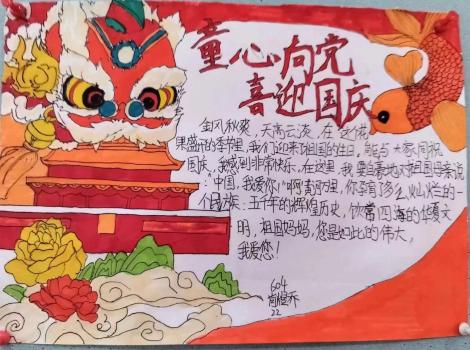 童心向党
喜迎国庆
金风秋爽，天高云淡，在这成
果盛开的季节里，我们迎来了祖国的生日，能与大家同祝
国庆，我感到非常快乐，在这里，我要自豪地对祖国母亲说
：中国，我爱你！"啊！黄河里，你孕育了多么灿烂的一
个民族：五千年的辉煌历史，饮誉四海的华夏文
明，祖国妈妈，您是如此的伟大，
我爱您！
604
22